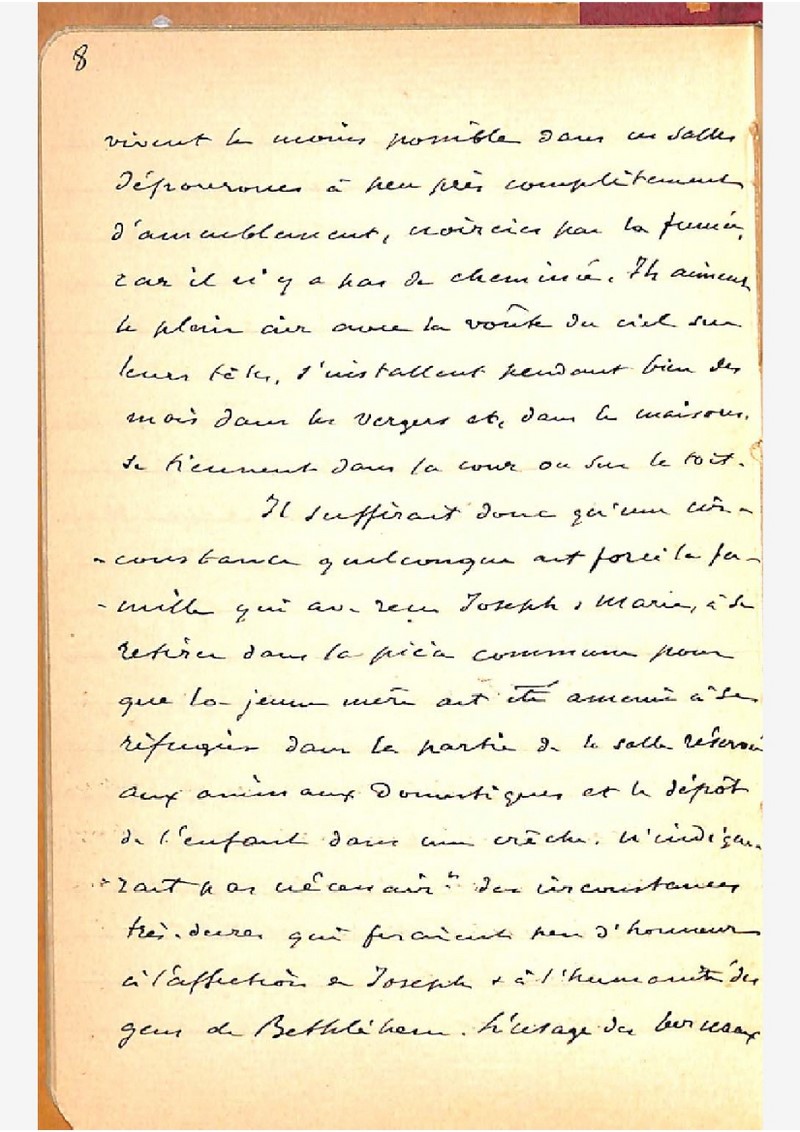 8
vivent le moins possible dans ces salles
dépourvues à peu près complètement
d'ameublement, noircies par la fumée,
car il n'y a pas de cheminée. Ils aiment
le plein air avec la voûte du ciel sur
leurs têtes, s'installent pendant bien des
mois dans les vergers et, dans les maisons,
se tiennent dans la cour ou sur le toit.
Il suffirait donc qu'une cir-
-constance quelconque ait forcé la fa-
-mille qui reçu Joseph & Marie, à se
retirer dans la pièce commune pour
que la jeune mère ait été amenée à se
réfugier dans la partie de la salle réservée
aux animaux domestiques et le dépôt
de l'enfant dans une crèche. n'indique-
-rait pas nécessairt des circonstances
très-dures qui feraient peu d'honneur
à l'affection de Joseph & à l'humanité des
gens de Bethléhem. L'usage des berceaux